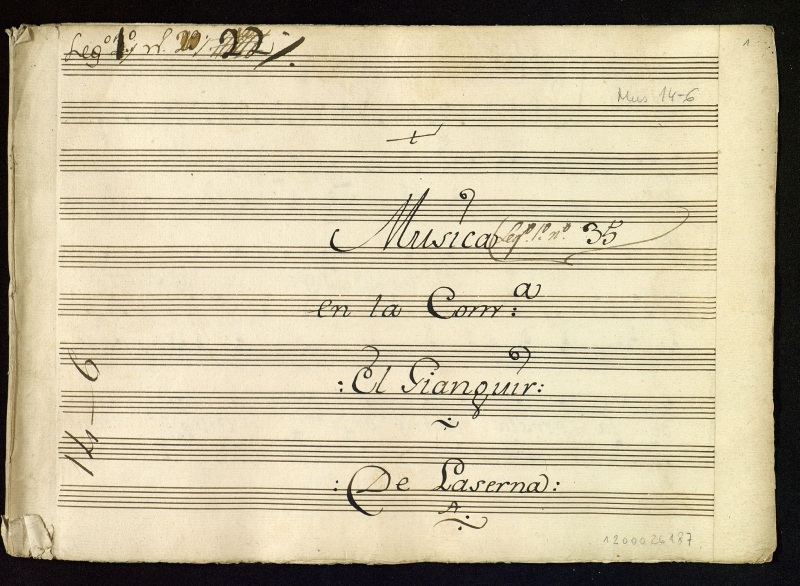 Leg.º 1.º n.º 22
1
Mus 14-6
Musica Leg.º 1.º n.º 35
en la Com.ª
:El Gianguir:
14-6
:De Laserna:
1200026187